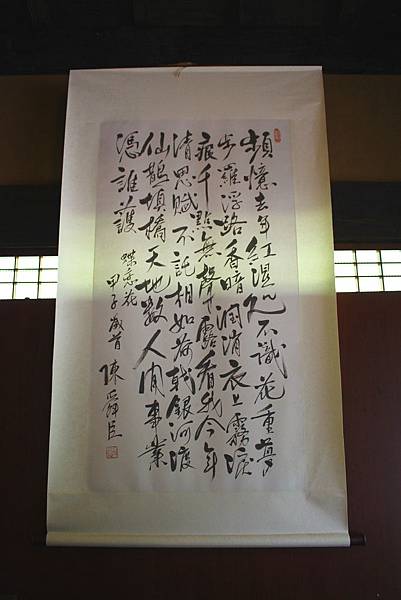 頻憶去年紅湿処不識花重夢
步羅浮路香暗潤消衣上霧淚
痕千點無聲露看我今年
清思賦不託相如荷戟銀河渡
仙鵲填橋天地數人間事業
憑誰護 蝶恋花
甲子歳首
陳舜臣